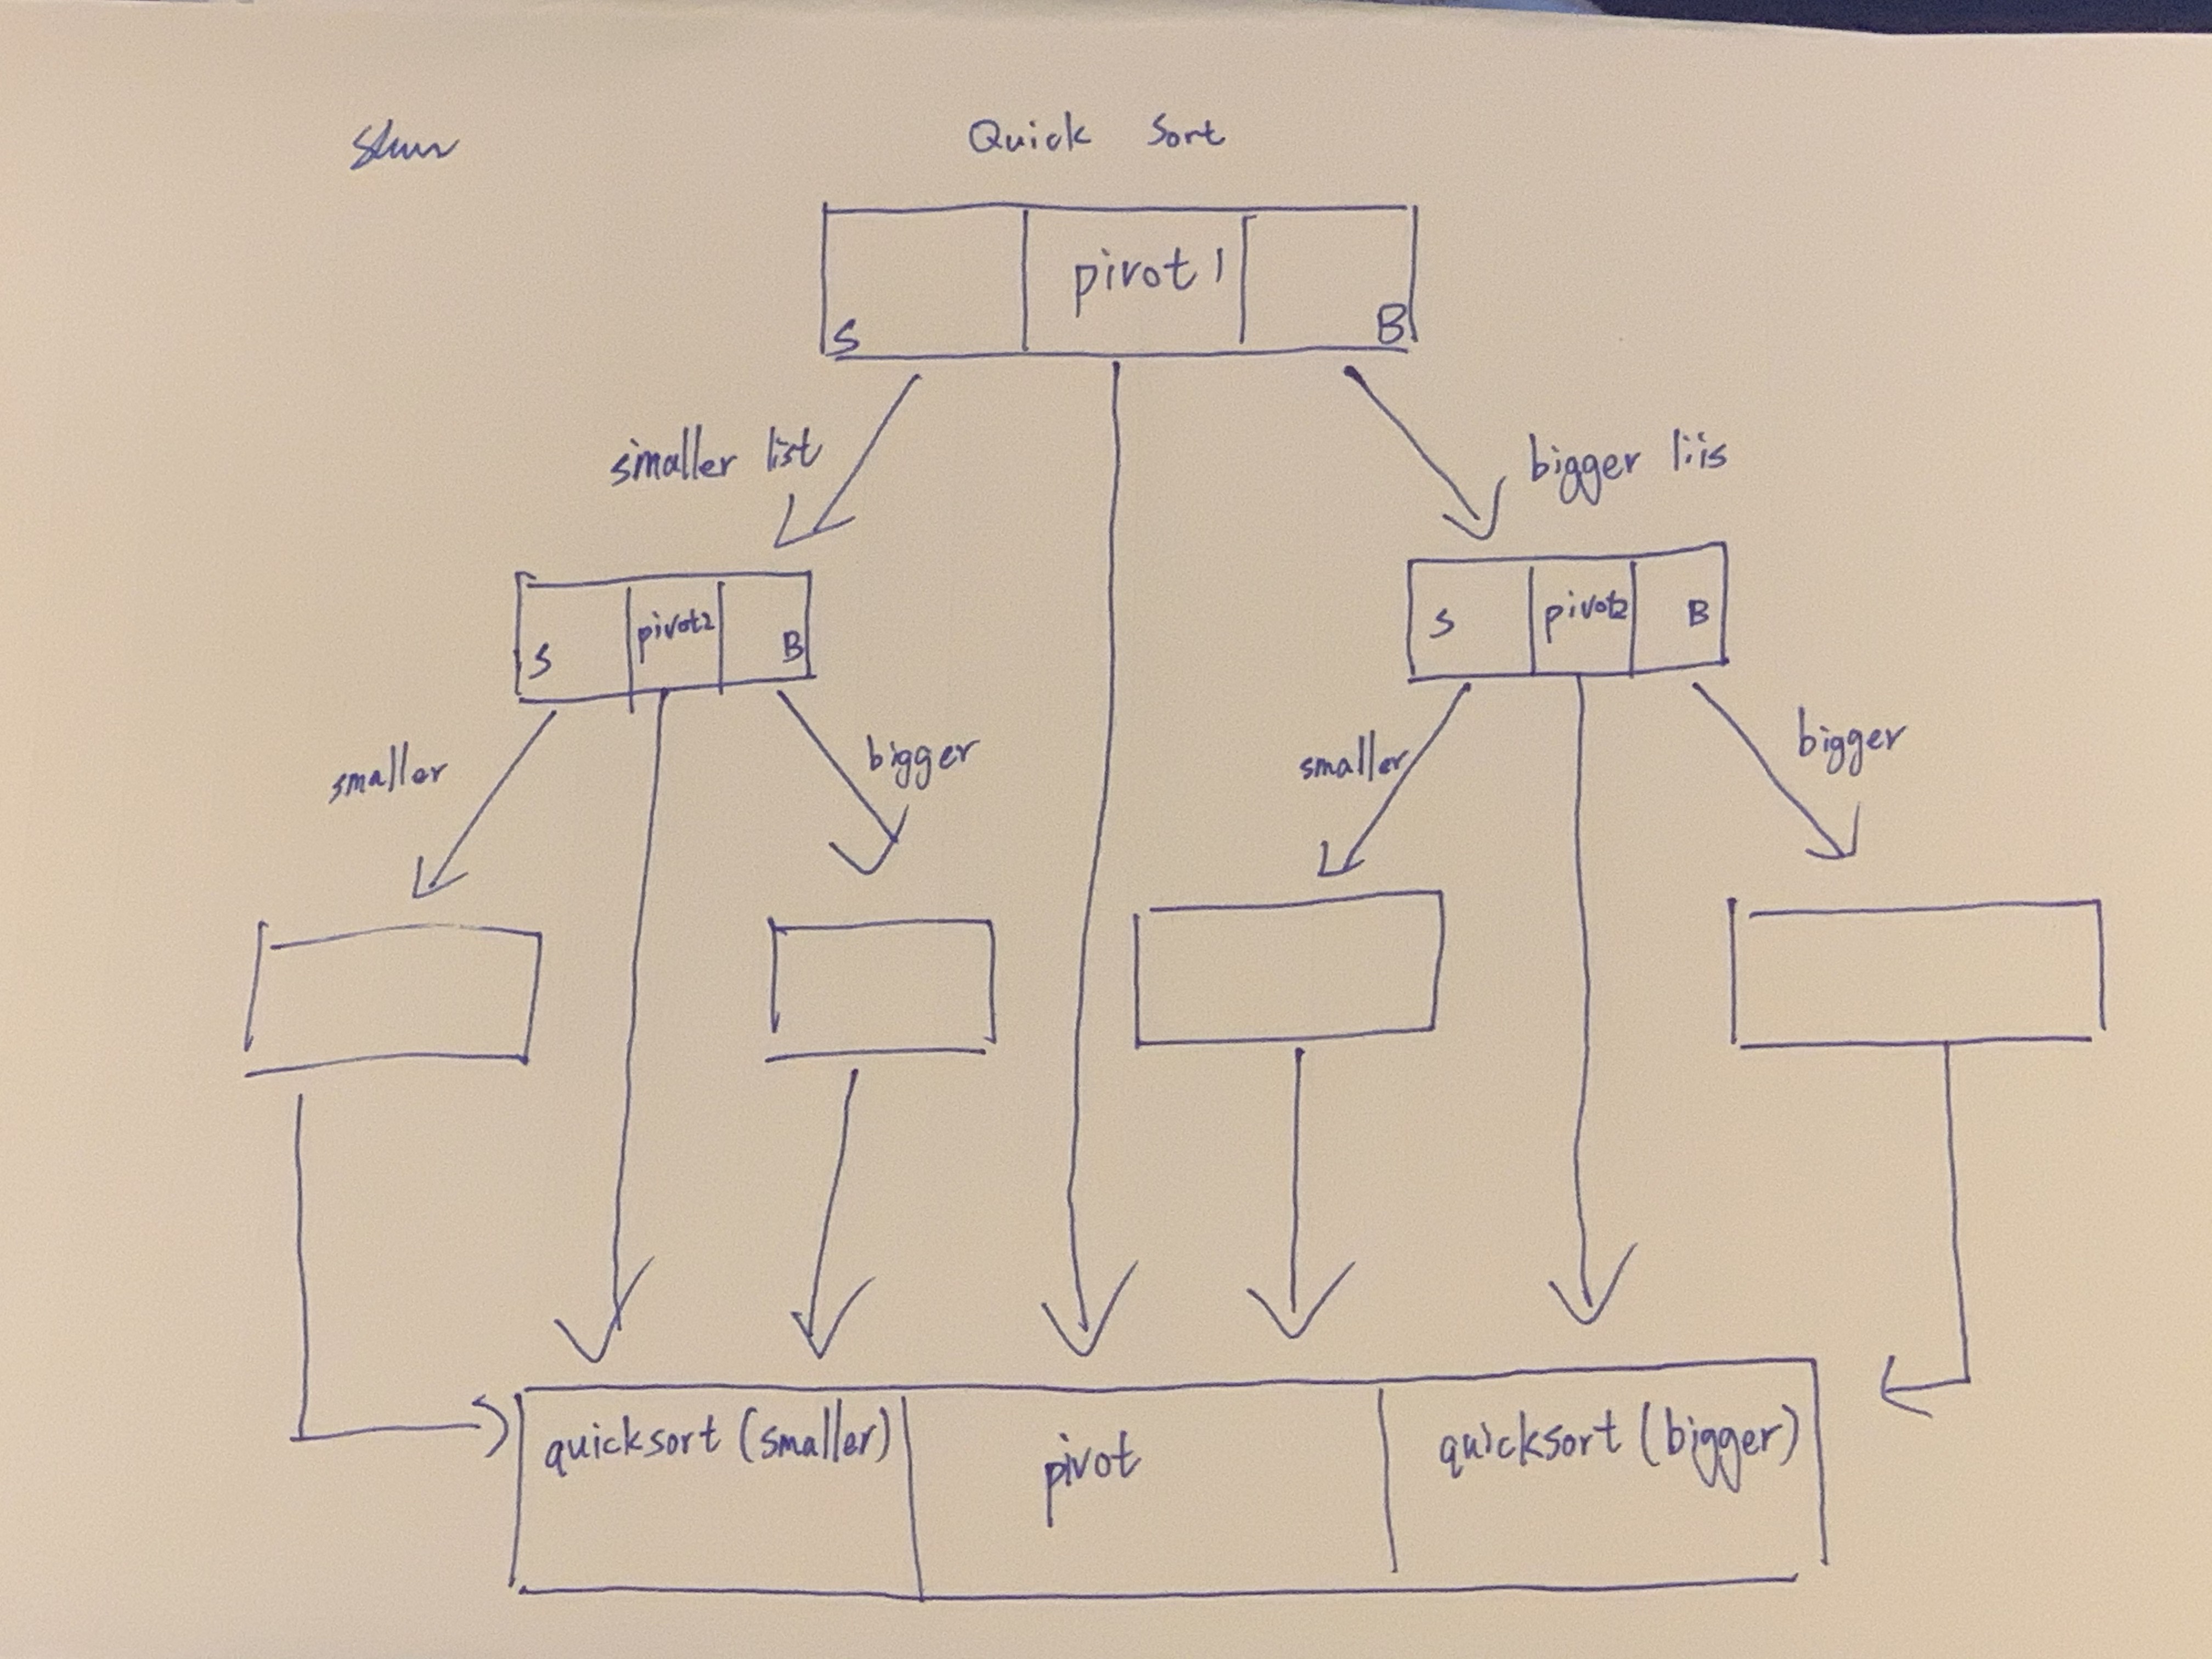 Quick Sort
pivot 1
S
B
smaller list
bigger liis
S pivot2 B
S pivot2 B
smaller
bigger
smaller
bigger
quicksort (smaller)
pivot
quicksort (bigger)